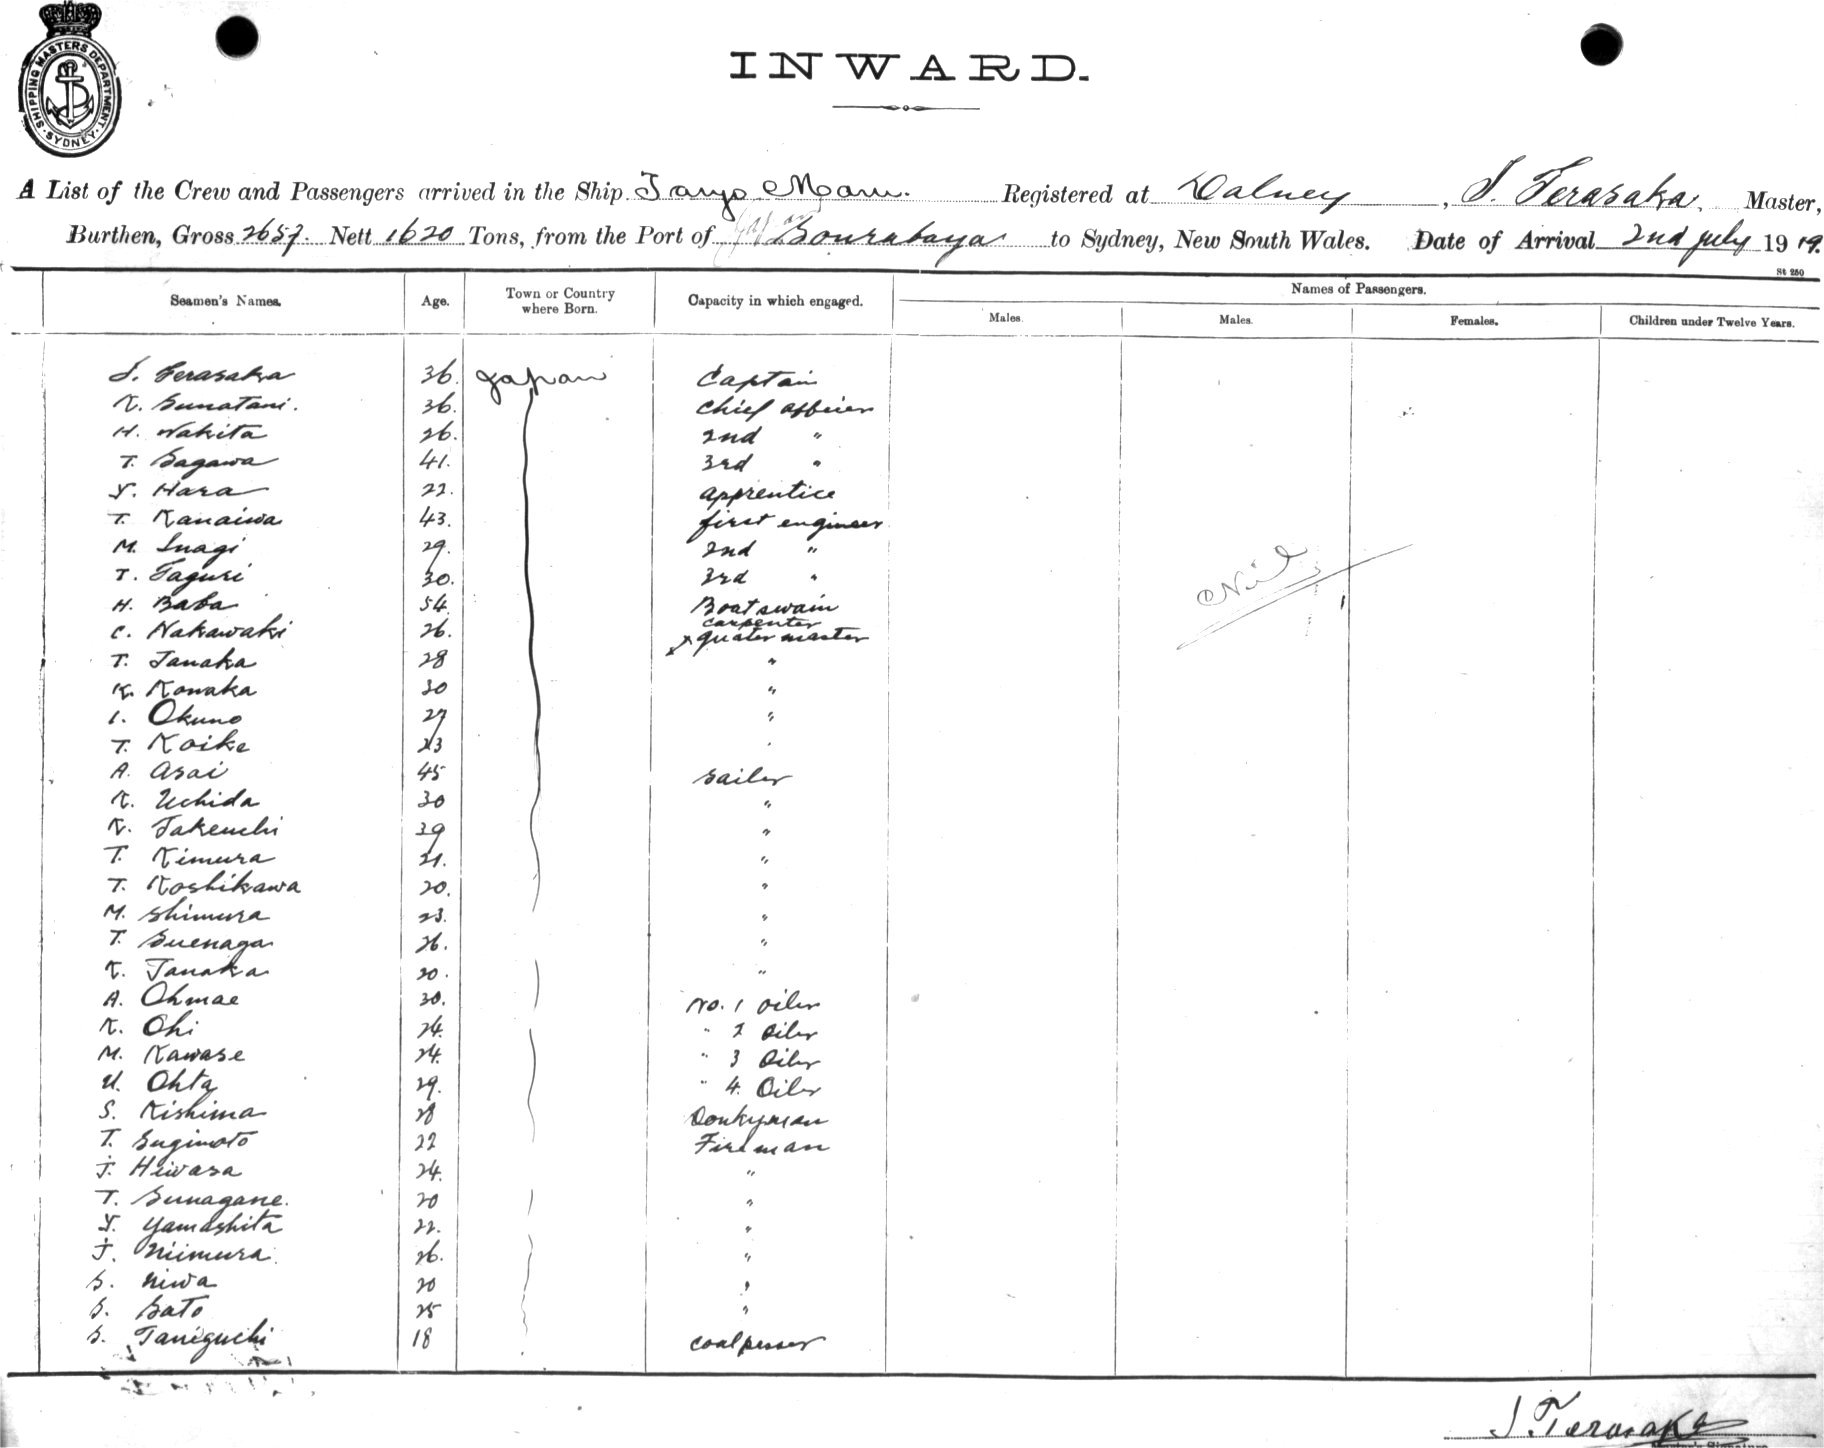 SHIPPING MASTERS DEPARTMENT · SYDNEY ·
INWARD.
A List of the Crew and Passengers arrived in the Ship Tanyo Maru. Registered at Dalney, S. Terasaka, Master,
Burthen, Gross 2657. Nett 1620 Tons, from the Port of Sourabaya to Sydney, New South Wales. Date of Arrival 2nd July 1919.
St 250
Seamen's Names. Age. Town or Country where Born. Capacity in which engaged. Names of Passengers.
Males. Males. Females. Children under Twelve Years.
S. Terasaka 36. Japan Captain
K. Sunatani. 36. Chief officer
H. Wakita 26. 2nd "
T. Sagawa 41. 3rd "
Y. Hara 22. apprentice
T. Kanaiwa 43. first engineer
M. Inagi 29. 2nd "
T. Taguri 30. 3rd "
H. Baba 54. Boatswain
carpenter
C. Nakawaki 26. x quater master
T. Tanaka 28 "
K. Konaka 30 "
I. Okuno 27 "
T. Koike 23
A. Asai 45 sailer
K. Uchida 30 "
K. Takeuchi 39 "
T. Kimura 21. "
T. Koshikawa 20. "
M. Shimura 23. "
T. Suenaga 26. "
K. Tanaka 20. "
A. Ohmae 30. No. 1 oiler
K. Ohi 24. " 2 Oiler
M. Kawase 24. " 3 Oiler
U. Ohta 29. " 4. Oiler
S. Kishima 28 Donkyman
T. Sugimoto 22 Fireman
J. Hiwasa 24. "
T. Sunagane. 20 "
Y. Yamashita 22. "
J. Niimura. 26. "
S. Niwa 20 "
S. Sato 25 "
S. Taniguchi 18 coalpesser
Nil
S. Terasaka